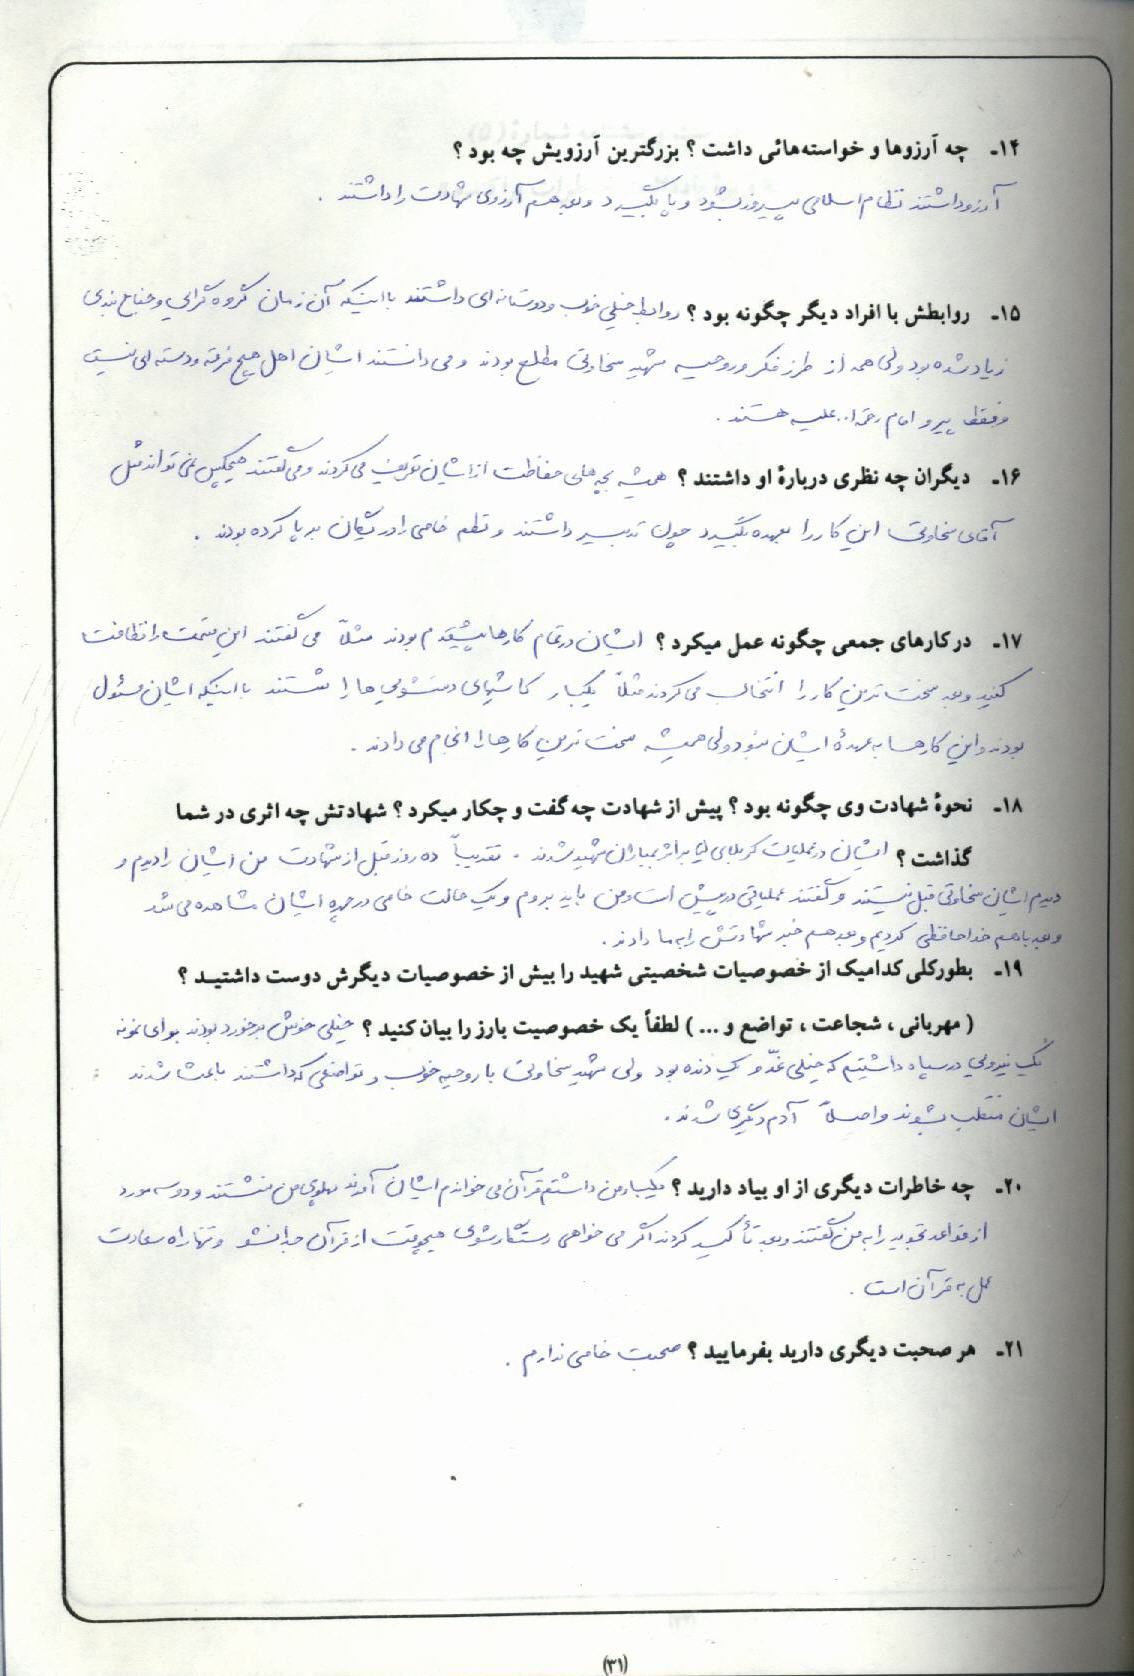 ۱۴ـ چه آرزوها و خواسته‌هائی داشت؟ بزرگترین آرزویش چه بود؟
آرزو داشتند نظام اسلامی پیروز بشود و پا بگیرد و بعد هم آرزوی شهادت را داشتند .
۱۵ـ روابطش با افراد دیگر چگونه بود؟ روابط خیلی خوب و دوستانه‌ای داشتند با اینکه آن زمان گروه گرایی و جناح بندی
زیاد شده بود ولی همه از طرز فکر و روحیه شهید سخاوتی مطلع بودند و می دانستند ایشان اهل هیچ فرقه و دسته ای نیست
و فقط پیرو امام رحمة ا.. علیه هستند .
۱۶ـ دیگران چه نظری دربارهٔ او داشتند؟ همیشه بچه های حفاظت از ایشان تعریف می کردند و می گفتند هیچکس نمی تواند مثل
آقای سخاوتی این کار را بعهده بگیرد چون تدبیر داشتند و نظم خاصی را در یگان برپا کرده بودند .
۱۷ـ در کارهای جمعی چگونه عمل میکرد؟ ایشان در تمام کارها پیشقدم بودند مثلاً می گفتند این قسمت را نظافت
کنید و بعد سخت ترین کار را انتخاب می کردند مثلاً یکبار کاشیهای دستشویی ها را شستند با اینکه ایشان مسئول
بودند و این کارها به عهدهٔ ایشان نبود ولی همیشه سخت ترین کارها را انجام می دادند .
۱۸ـ نحوهٔ شهادت وی چگونه بود؟ پیش از شهادت چه گفت و چکار میکرد؟ شهادتش چه اثری در شما
گذاشت؟ ایشان در عملیات کربلای بر اثر بمباران شهید شدند . تقریباً ده روز قبل از شهادت من ایشان را دیدم و
دیدم ایشان سخاوتی قبل نیستند و گفتند عملیاتی در پیش است و من باید بروم و یک حالت خاصی در چهره ایشان مشاهده می شد
و بعد با هم خداحافظی کردیم و بعد هم خبر شهادتش را به ما دادند .
۱۹ـ بطورکلی کدامیک از خصوصیات شخصیتی شهید را بیش از خصوصیات دیگرش دوست داشتیـد؟
(مهربانی، شجاعت، تواضع و ...) لطفاً یک خصوصیت بارز را بیان کنید؟ خیلی خوش برخورد بودند برای نمونه
یک نیرویی در سپاه داشتیم که خیلی غدّ و یک دنده بود ولی شهید سخاوتی با روحیه خوب و تواضعی که داشتند باعث شدند
ایشان منقلب بشوند و اصلاً آدم دیگری شدند .
۲۰ـ چه خاطرات دیگری از او بیاد دارید؟ یکبار من داشتم قرآن می خواندم ایشان آمدند پهلوی من نشستند و دو سه مورد
از قواعد تجوید را به من گفتند و بعد تأکید کردند اگر می خواهی رستگار شوی هیچوقت از قرآن جدا نشو و تنها راه سعادت
عمل به قرآن است .
۲۱ـ هر صحبت دیگری دارید بفرمایید؟ صحبت خاصی ندارم .
(۳۱)